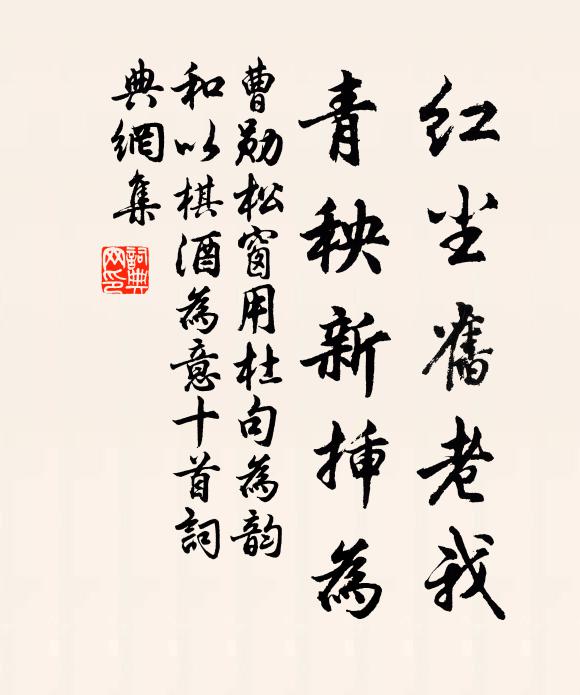 红尘舊老我
青秧新揷為
曹勋松窗用杜句為韵
和以棋酒為意十首詞
典網集
詞典网印